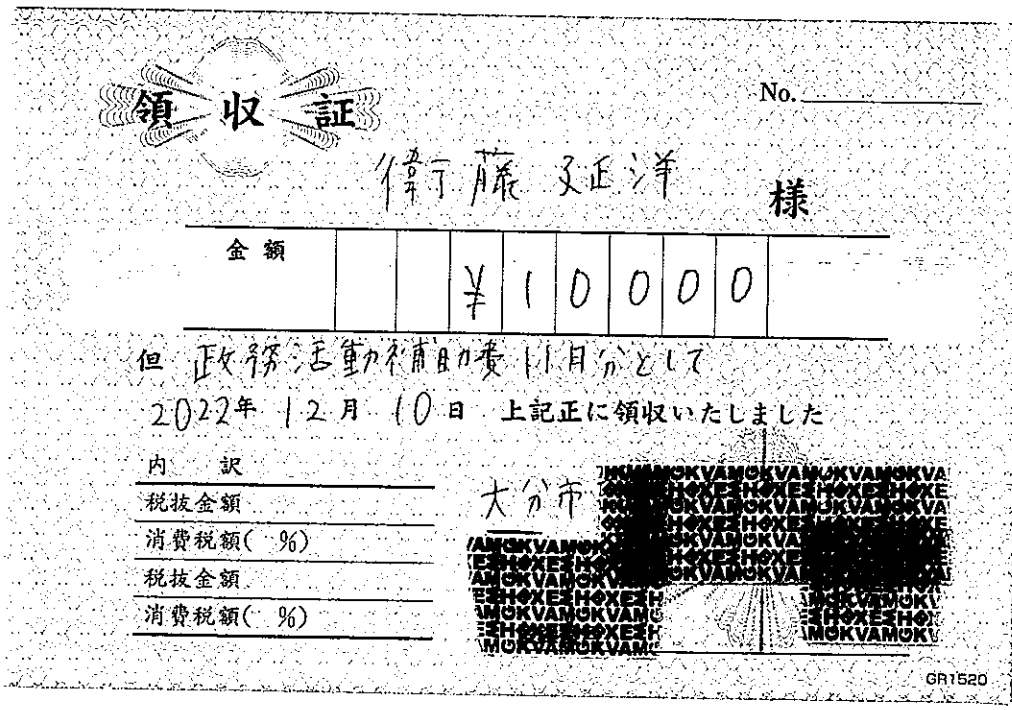 領収証
No.
衛藤 様
金額 ¥10000
但 政務活動補助費11月分として
2022年 12月 10日 上記正に領収いたしました
内 訳
税抜金額
消費税額( %)
税抜金額
消費税額( %)
大分市
GR1520